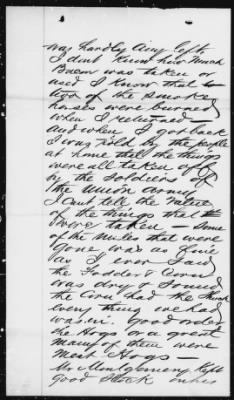 was hardly any left
I dont know how much
Bacon was taken or
and I know that
of the smoke
houses were burned
when I returned —
and when I got back
I was told by the people
at home that the things
were all taken off
by the soldiers of
the Union army
I cant tell the value
of the things that
were taken — some
of the mules that were
gone was as fine
as I ever saw
the Fodder & Corn
was dry & sound
the Corn had the shuck
every thing we had
was in good order
the Hogs or a great
many of them were
Meat Hogs —
Mr Montgomery kept
good stock